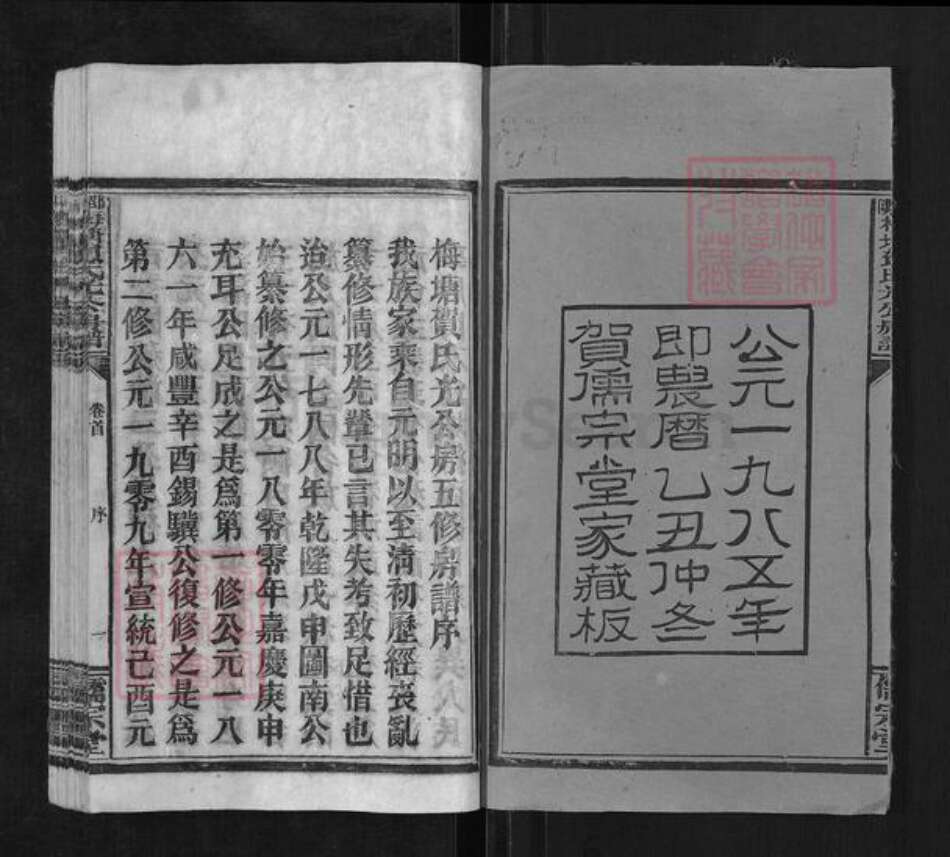 公元一九八五年
即農曆乙丑仲冬
賀儒宗堂家藏板
梅塘賀氏允公房五修房譜序
我族家乘自元明以至清初歷經喪亂
纂修情形先輩已言其失考致足惜也
治公元一七八八年乾隆戊申圖南公
始纂修之公元一八零零年嘉慶庚申
充耳公足成之是為第一修公元一八
六一年咸豐辛酉錫驥公復修之是為
第二修公元一九零九年宣統己酉元
卷首
序
一
儒宗堂